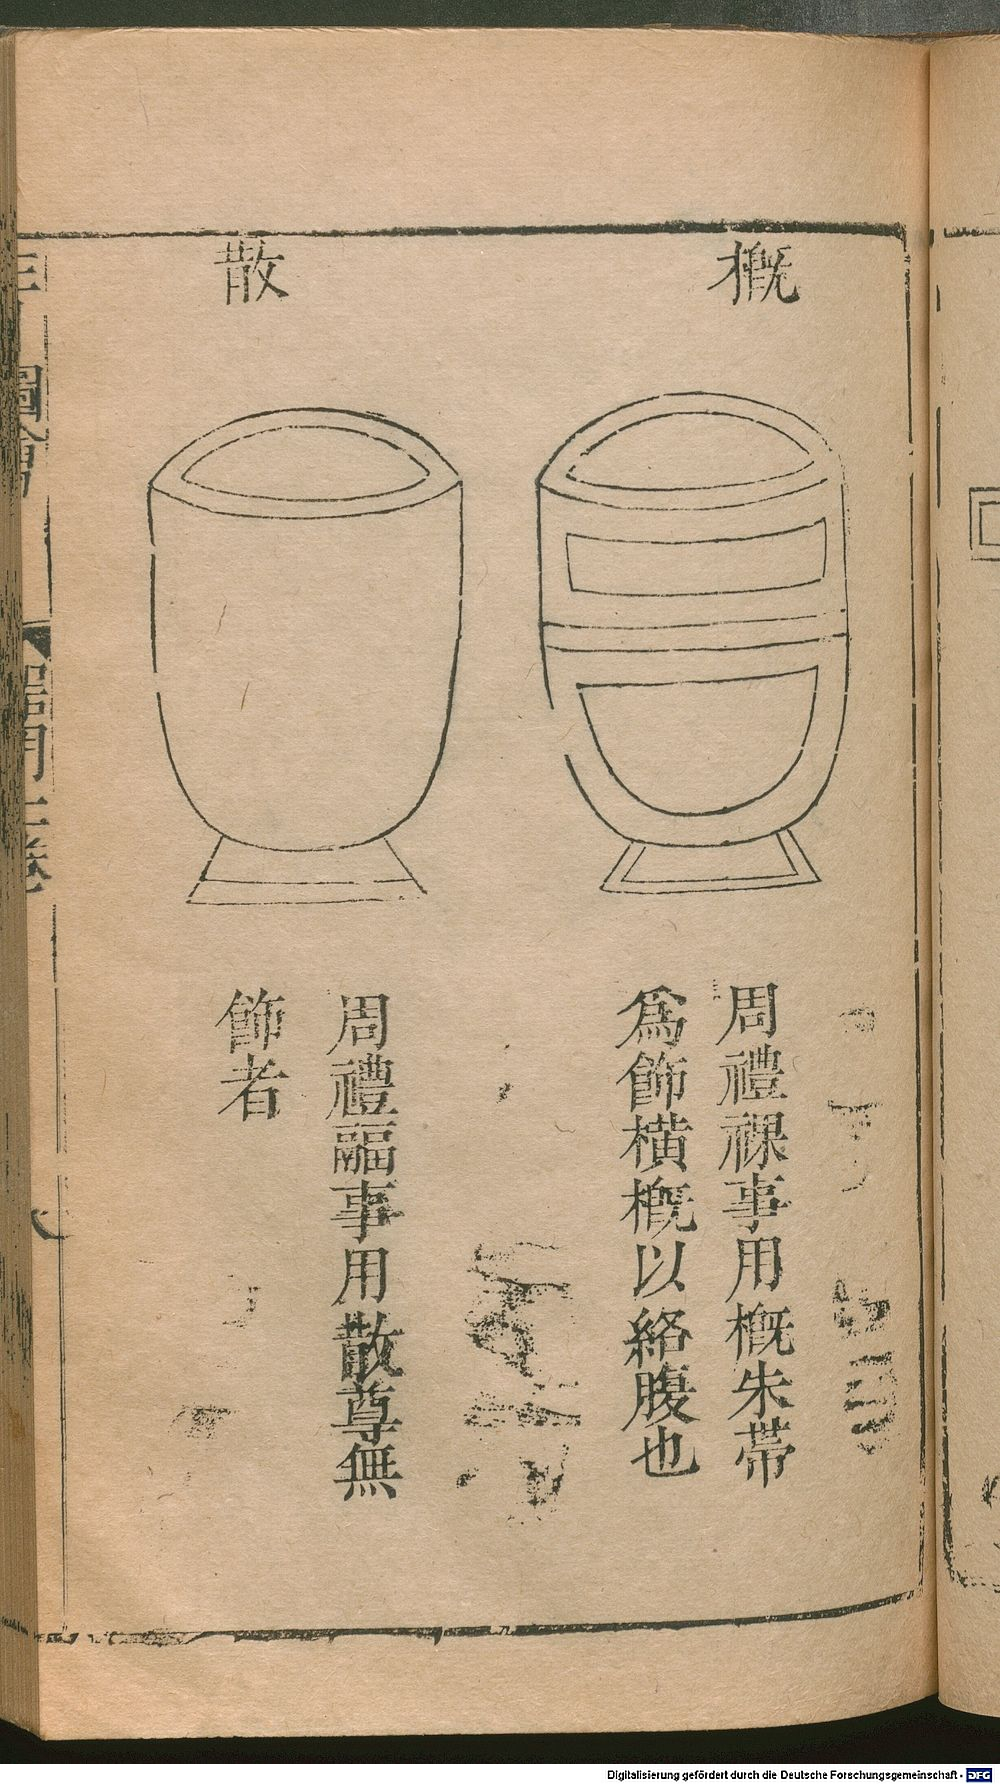 概
周禮祼事用概朱帶
爲飾橫概以絡腹也
散
周禮疈事用散尊無
飾者
圖會
Digitalisierung gefördert durch die Deutsche Forschungsgemeinschaft - DFG